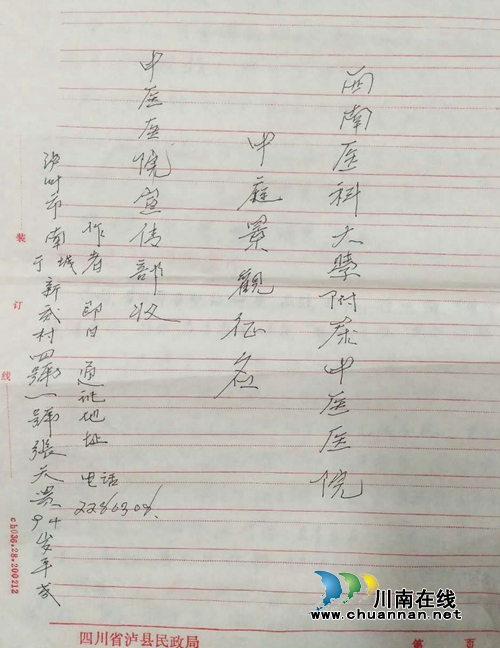 西南医科大學附属中医医院
中庭景觀征名
中医医院宣传部收
作者 即日 通讯地址 电话
2286303
泸州市南城
新武村四號一號張天 94岁
装
订
线
ch036.28.200212
四川省泸县民政局
第 页
川南在线
www.chuannan.net